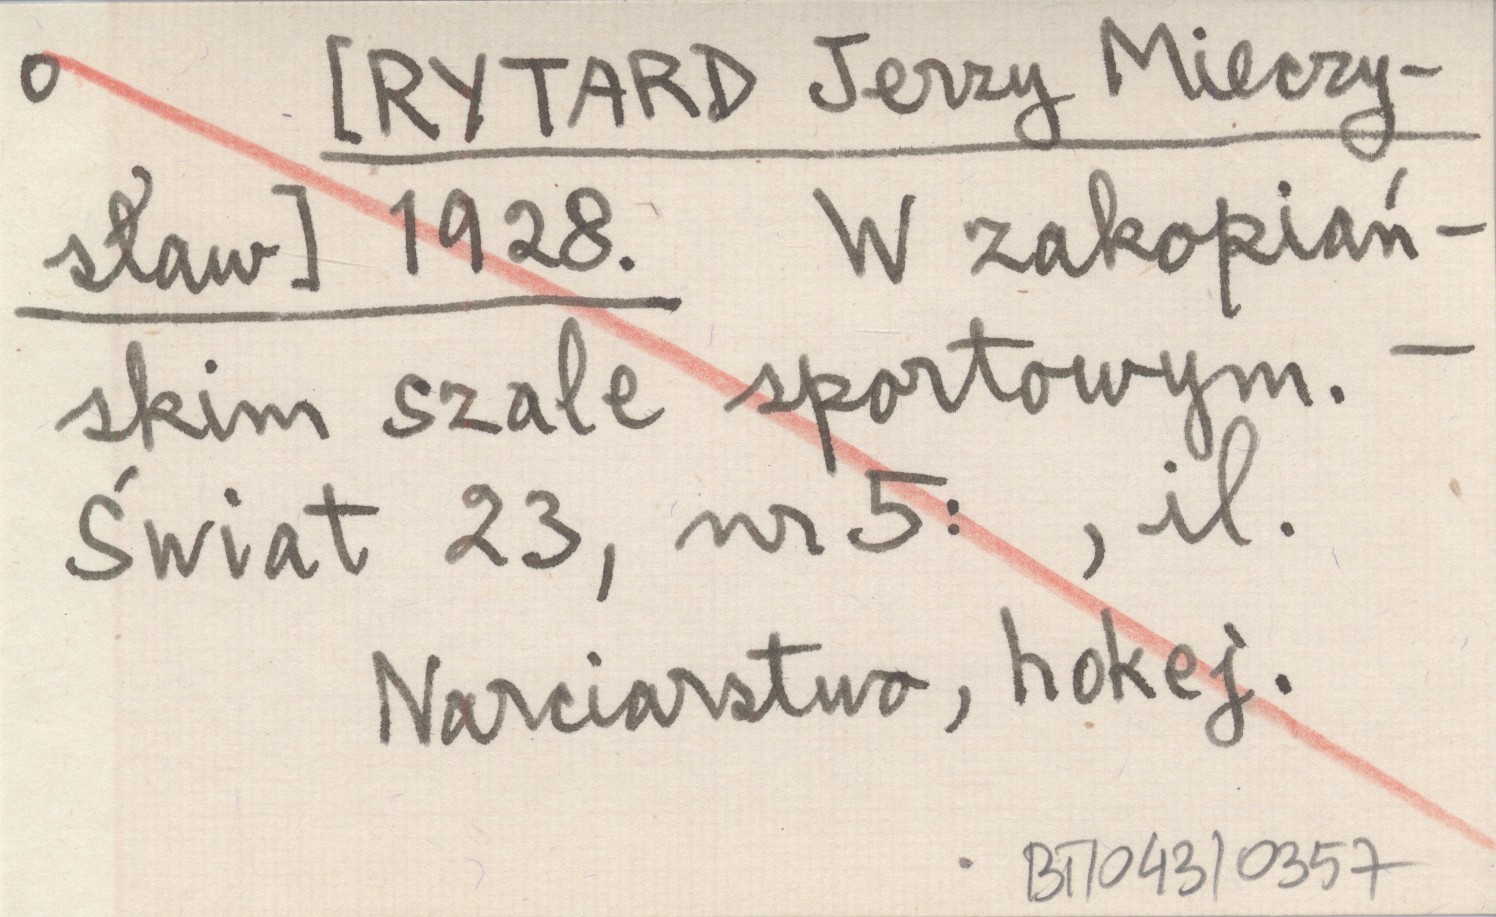 o [RYTARD Jerzy Mieczy-
sław] 1928. W zakopiań-
skim szale sportowym. —
Świat 23, nr 5: , il.
Narciarstwo, hokej.
BT/043/0357